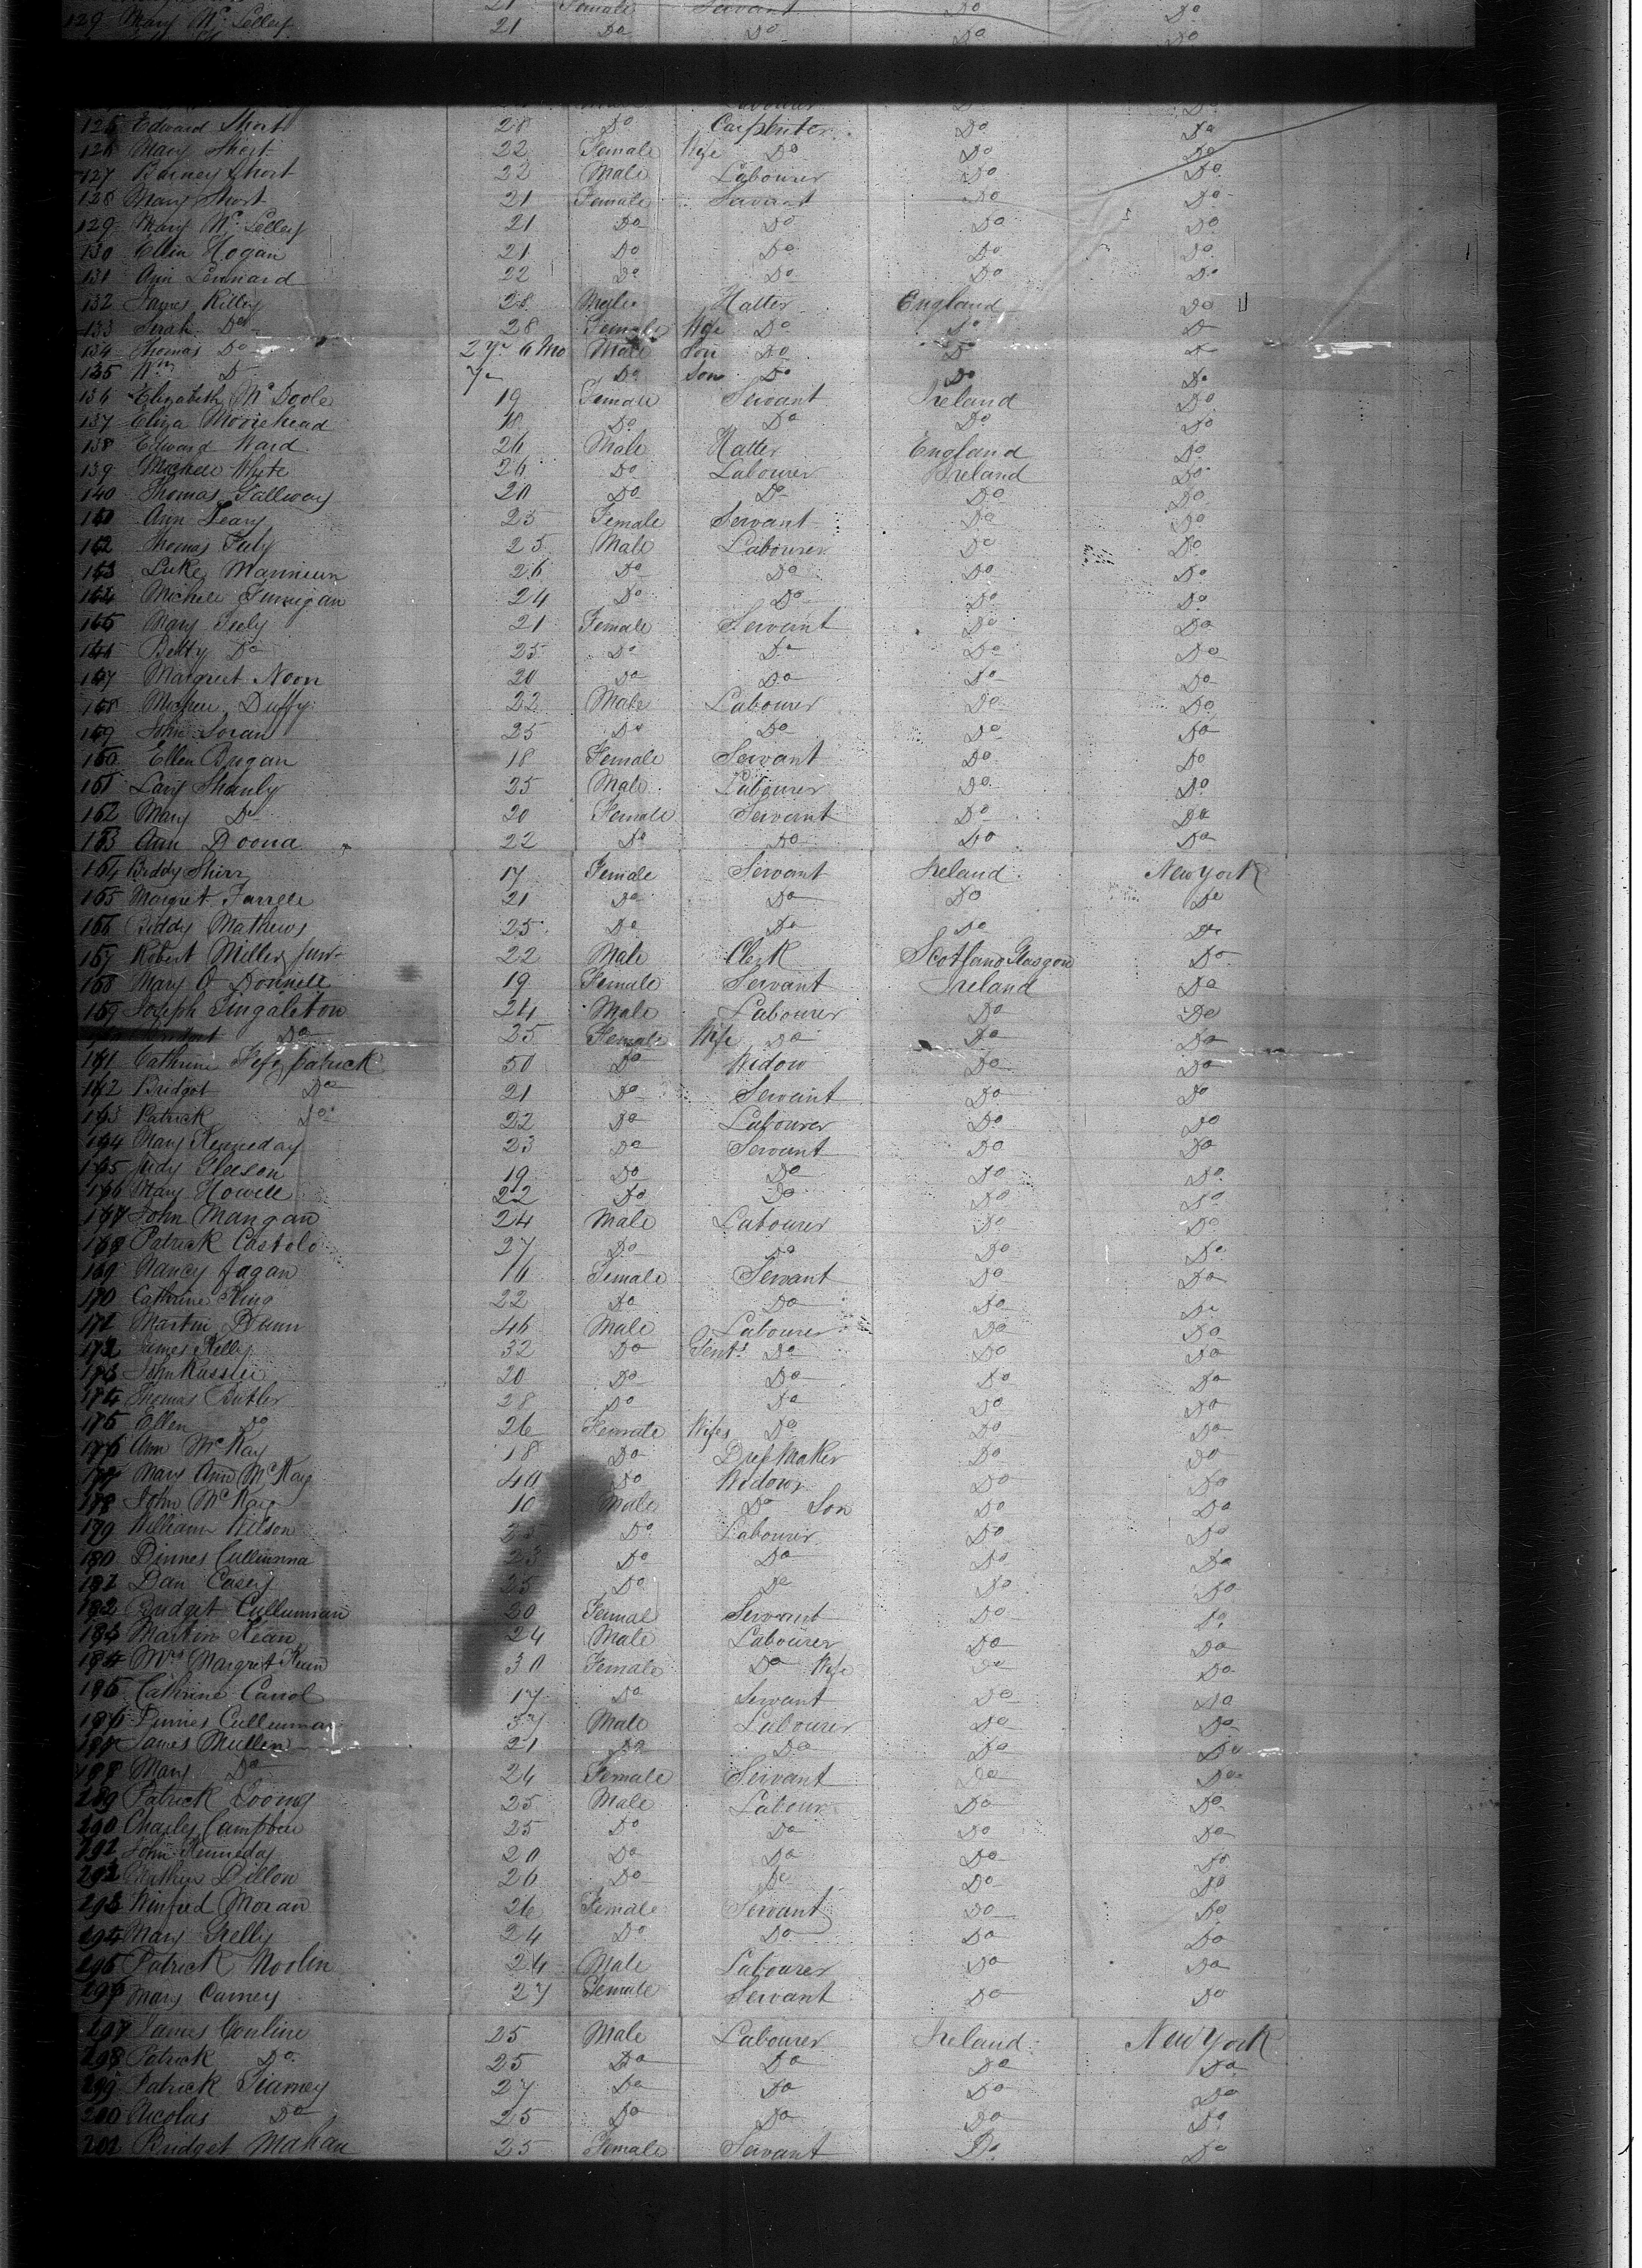 21 Female Servant Do Do
129 Mary Mc Lelley 21 Do Do Do Do
125 Edward Short 28 Do Carpenter Do Do
126 Mary Short 22 Female Wife Do Do Do
127 Barney Short 22 Male Labourer Do Do
128 Mary Short 21 Female Servant Do Do
129 Mary Mc Lelley 21 Do Do Do Do
130 Ellen Hogan 21 Do Do Do Do
131 Ann Lennard 22 Do Do Do Do
132 James Killey 28 Male Hatter England Do
133 Sarah Do 28 Female Wife Do Do Do
134 Thomas Do 2 yr 6 Mo Male Son Do Do Do
135 Wm D Do Son Do Do Do
136 Elizabeth Mc Doole 19 Female Servant Ireland Do
137 Eliza Moorehead 18 Do Do Do Do
138 Edward Ward 26 Male Hatter England Do
139 Michele White 26 Do Labourer Ireland Do
140 Thomas Gallway 20 Do Do Do Do
Ann Leary 25 Female Servant Do Do
Thomas Fuly 25 Male Labourer Do Do
Luke Mannieun 26 Do Do Do Do
Michele Finnigan 24 Do Do Do Do
Mary Fuly 21 Female Servant Do Do
Betty Do 25 Do Do Do Do
Margret Noon 20 Do Do Do Do
Duffy 22 Male Labourer Do Do
John Soran 25 Do Do Do Do
Ellen Dugan 18 Female Servant Do Do
Lary Shanly 25 Male Labourer Do Do
162 Mary Do 20 Female Servant Do Do
163 Ann Doona 22 Do Do Do Do
164 Biddy Shirr 17 Female Servant Ireland New York
165 Margret Farrele 21 Do Do Do Do
166 Biddy Mathews 25 Do Do Do Do
167 Robert Miller Junr 22 Male Clerk Scotland Glasgon Do
168 Mary O Donnele 19 Female Servant Ireland Do
169 Joseph Singaleton 24 Male Labourer Do Do
Do 25 Female Wife Do Do Do
Cathrine Fitzpatrick 50 Do Widow Do Do
Bridget Do 21 Do Servant Do Do
Patrick Do 22 Do Labourer Do Do
Mary Kenneday 23 Do Servant Do Do
Judy Gleeson 19 Do Do Do Do
Mary Howele 22 Do Do Do Do
John Mangan 24 Male Labourer Do Do
168 Patrick Castolo 27 Do Do Do Do
169 Nancy Fagan 16 Female Servant Do Do
170 Cathrine King 22 Do Do Do Do
171 Martin Dunn 46 Male Labourer Do Do
172 James Kelly 32 Do Gent Do Do Do
173 John Russle 20 Do Do Do Do
174 Thomas Butler 28 Do Do Do Do
175 Ellen Do 26 Female Wifes Do Do Do
176 Ann McKay 18 Do Dressmaker Do Do
177 Mary Ann McKay 40 Do Widow Do Do
178 John McKay 10 Male Do Son Do Do
179 William Wilson Do Labourer Do Do
180 Dinnes Cullinnna 23 Do Do Do Do
181 Dan Casey 25 Do Do Do Do
182 Bridget Cullunnan 20 Female Servant Do Do
183 Martin Kean 24 Male Labourer Do Do
184 Mrs Margret Kean 30 Female Do Wife Do Do
185 Cathrine Carrol 17 Do Servant Do Do
186 Dinnes Cullunnan 37 Male Labourer Do Do
James Mullen 21 Do Do Do Do
188 Mary Do 24 Female Servant Do Do
289 Patrick Loony 25 Male Labour Do Do
290 Charles Campbell 25 Do Do Do Do
291 John Kenneday 20 Do Do Do Do
292 Mathew Dillon 26 Do Do Do Do
293 Winfred Moran 26 Female Servant Do Do
294 Mary Kelly 24 Do Do Do Do
295 Patrick Noolin 24 Male Labourer Do Do
296 Mary Carney 27 Female Servant Do Do
297 James Conline 25 Male Labourer Ireland New York
298 Patrick Do 25 Do Do Do Do
299 Patrick Tiarney 27 Do Do Do Do
200 Nicolas Do 25 Do Do Do Do
201 Bridget Mahan 25 Female Servant Do Do